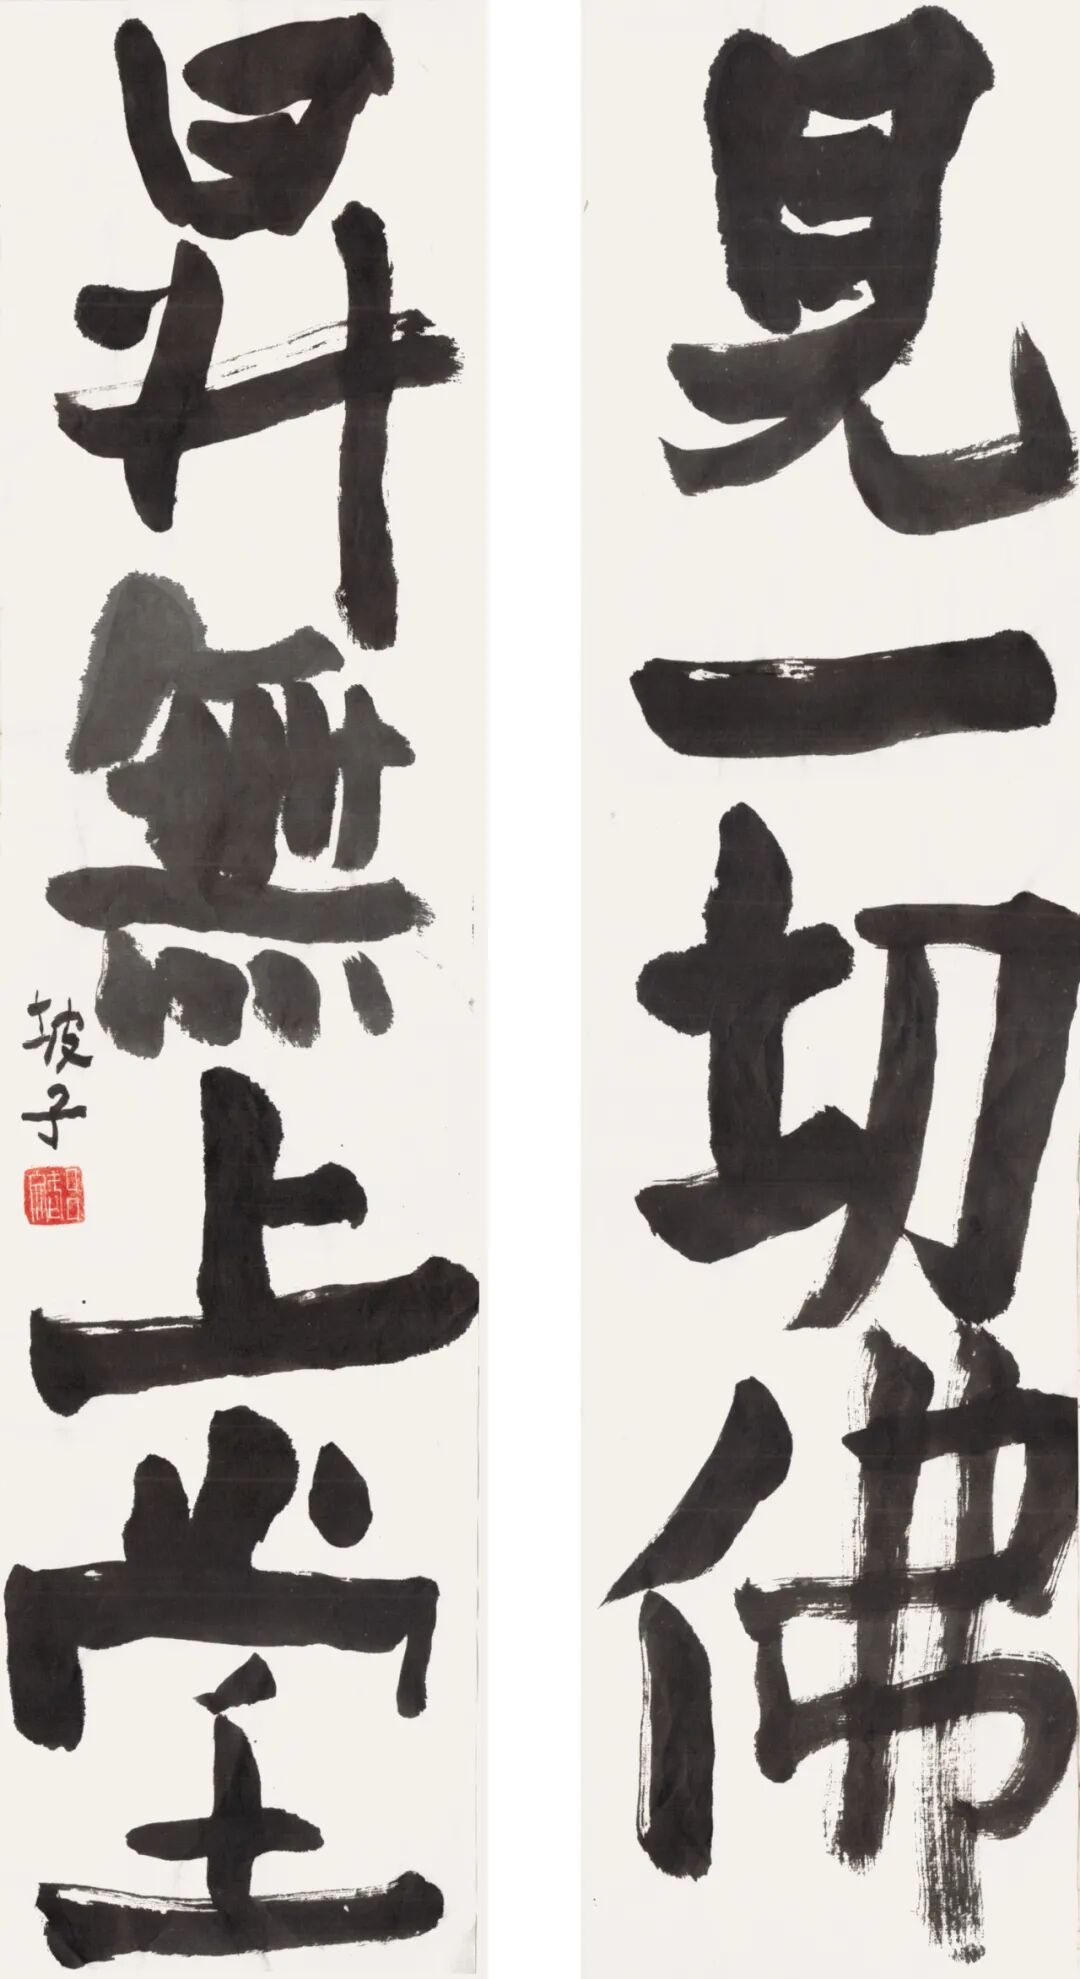 見一切佛
昇無上堂
坡子